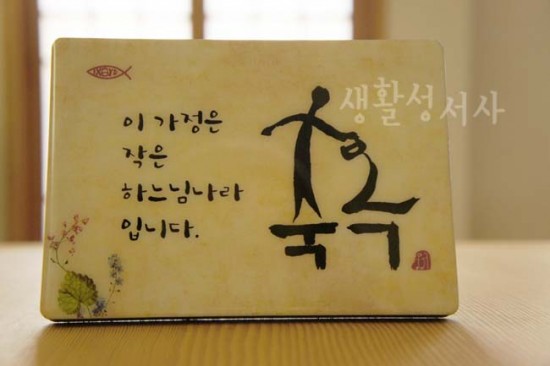 이 가정은
작은
하느님나라
입니다.
생활성서사